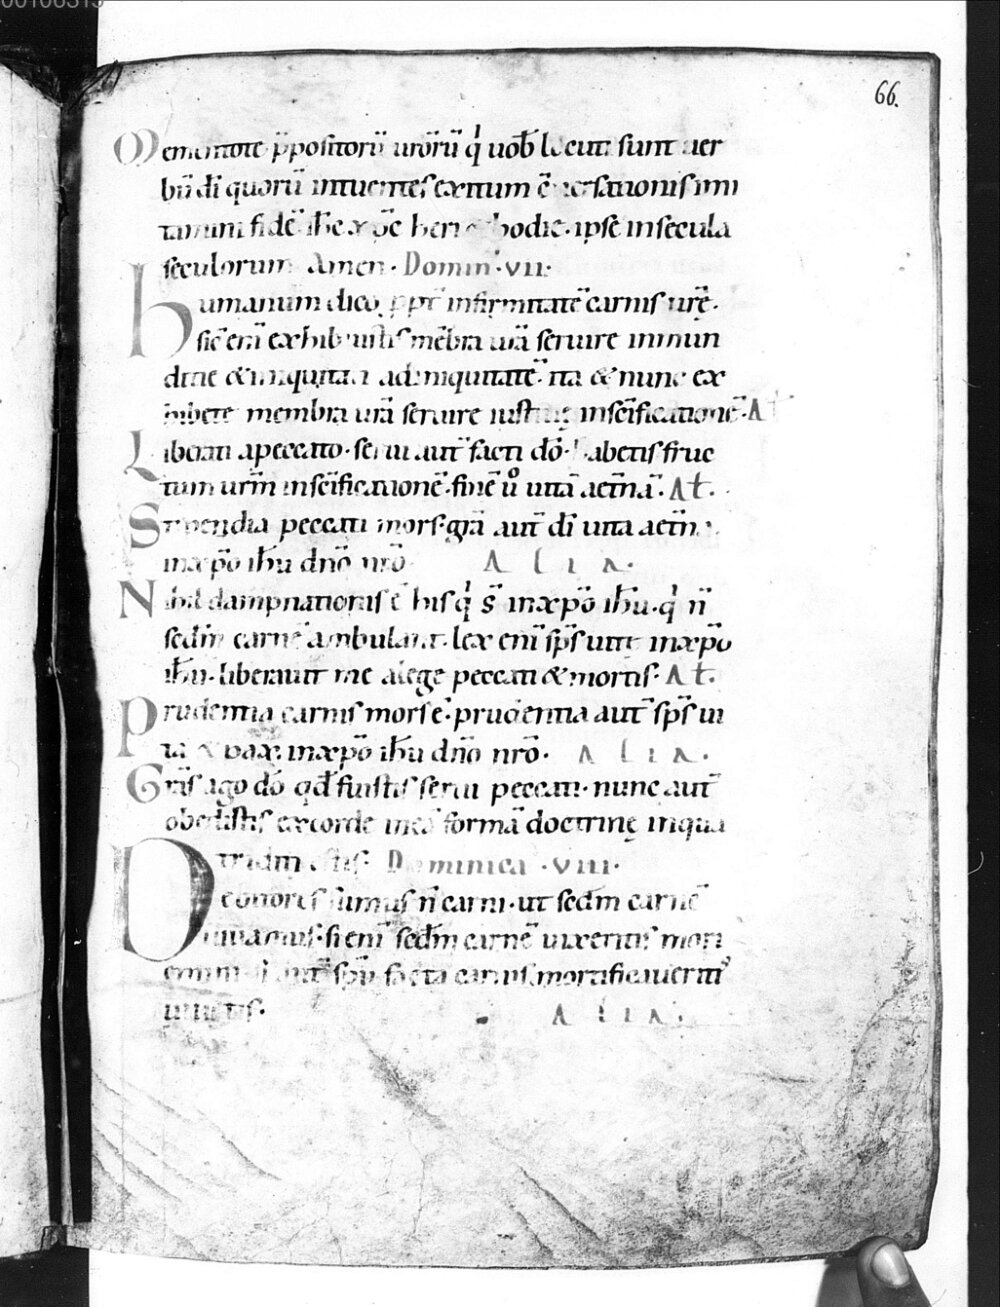 00106315
66.
Mementote p̄positorū ur̄orū q' uob̄ locuti sunt uer
bū dī quorū intuentes exitum ꝯuersationis imi
tamini fidē. ih̄c xp̄c heri & hodie. ipse insecula
seculorum Amen. Domin̄. vii.
humanum dico. ppt̄ infirmitatē carnis ur̄ę.
sic̄ eni exhibuistis mēbra ur̄a seruire inmun
dicię & iniquitati ad iniquitatē. ita & nunc ex
hibete membra ur̄a seruire iustitię insc̄ificationē. At̄
Liberati apeccato. serui aut̄ facti dō. habetis fruc
tum ur̄m insc̄ificationē. finē ů uitā aet̄nā. At̄.
Stipendia peccati mors. gr̄a aut̄ dī uita aet̄na
inxp̄o ih̄u dn̄o nr̄o Alia.
Nihil dampnationis ē hisq' s̄ inxp̄o ih̄u. q' n̄
sedm̄ carnē ambulant. lex enī sp̄s uitę inxp̄o
ih̄u. liberauit me alege peccati & mortis. At̄.
Prudentia carnis mors ē. prudentia aut̄ sp̄s ui
ta & pax. inxp̄o ih̄u dn̄o nr̄o. Alia.
Gr̄as ago dō qd̄ fuistis serui peccati. nunc aut̄
obedistis excorde ineā formā doctrinę inqua
traditi estis. Dominica . viii.
Debitores sumus n̄ carni. ut sedm̄ carnē
uiuamus. si enī sedm̄ carnē uixeritis mori
emini si aut̄ sp̄u facta carnis mortificaueritis
uiuetis. Alia.